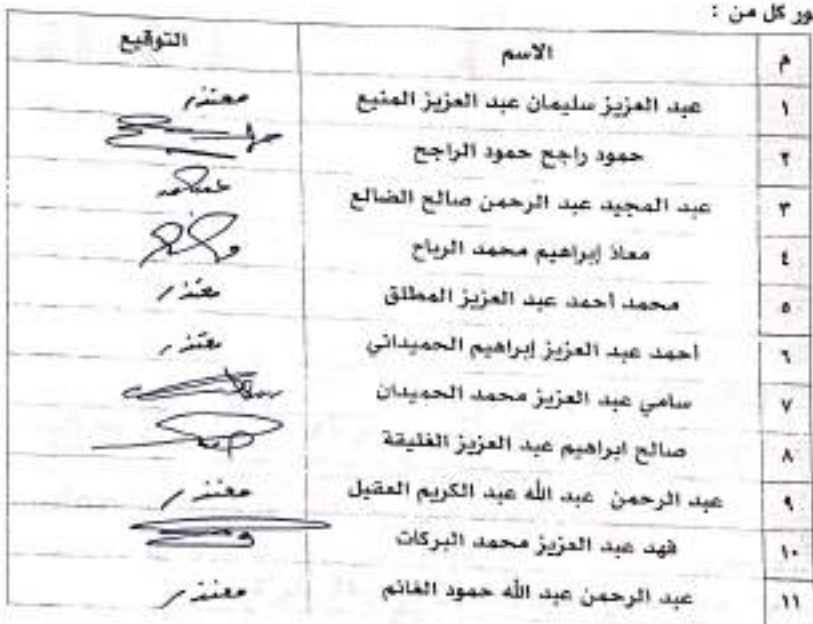 ور كل من :
م الاسم التوقيع
١ عبد العزيز سليمان عبد العزيز المنيع معتذر
٢ حمود راجح حمود الراجح
٣ عبد المجيد عبد الرحمن صالح الضالع
٤ معاذ إبراهيم محمد الرباح
٥ محمد أحمد عبد العزيز المطلق معتذر
٦ أحمد عبد العزيز إبراهيم الحميداني معتذر
٧ سامي عبد العزيز محمد الحميدان
٨ صالح ابراهيم عبد العزيز الغليقة
٩ عبد الرحمن عبد الله عبد الكريم العقيل معتذر
١٠ فهد عبد العزيز محمد البركات
١١ عبد الرحمن عبد الله حمود الغانم معتذر